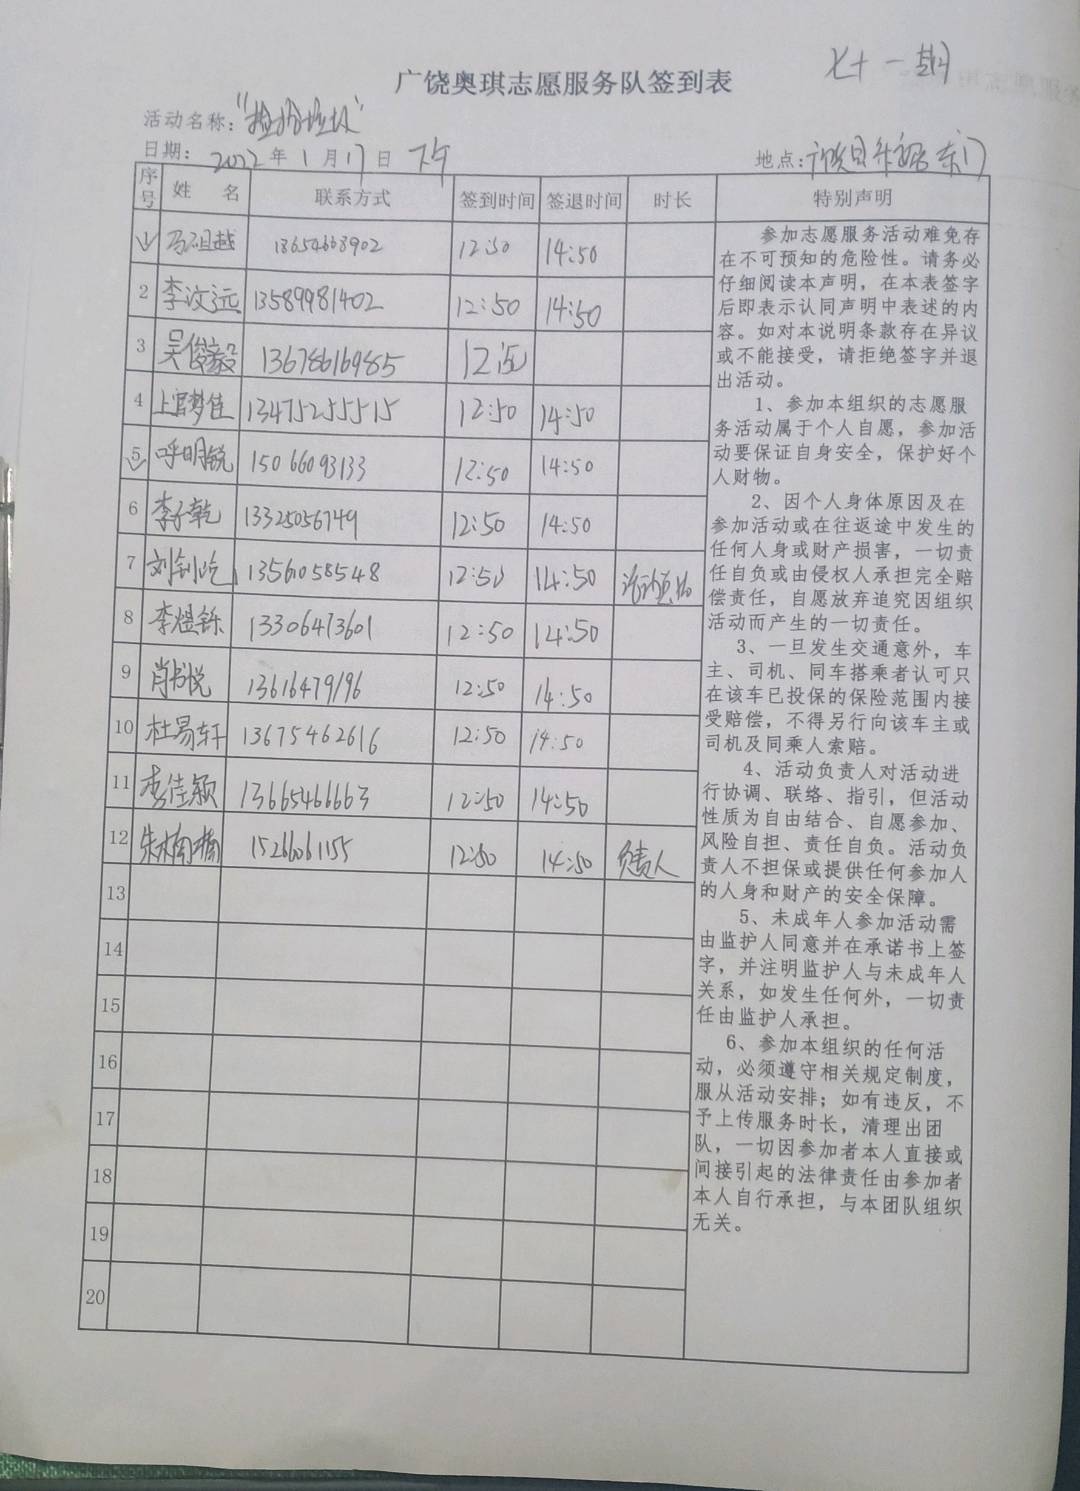 七十一期
广饶奥琪志愿服务队签到表
活动名称：“捡拾垃圾”
日期： 2022 年 1 月 17 日 下午
地点： 东门
序号 姓 名 联系方式 签到时间 签退时间 时长 特别声明
1 马祖越 13654663902 12:50 14:50
2 李汶远 13589981402 12:50 14:50
3 吴俊毅 13678616985 12:50
4 上官梦佳 13475255515 12:50 14:50
5 呼明锐 15066093133 12:50 14:50
6 李子乾 13325056749 12:50 14:50
7 刘钊屹 13561058548 12:50 14:50
8 李煜铄 13306473601 12:50 14:50
9 肖书悦 13616479196 12:50 14:50
10 杜易轩 13675462616 12:50 14:50
11 李佳颖 13665466663 12:50 14:50
12 朱楠楠 15266061155 12:50 14:50 负责人
13
14
15
16
17
18
19
20
参加志愿服务活动难免存
在不可预知的危险性。请务必
仔细阅读本声明，在本表签字
后即表示认同声明中表述的内
容。如对本说明条款存在异议
或不能接受，请拒绝签字并退
出活动。
1、参加本组织的志愿服
务活动属于个人自愿，参加活
动要保证自身安全，保护好个
人财物。
2、因个人身体原因及在
参加活动或在往返途中发生的
任何人身或财产损害，一切责
任自负或由侵权人承担完全赔
偿责任，自愿放弃追究因组织
活动而产生的一切责任。
3、一旦发生交通意外，车
主、司机、同车搭乘者认可只
在该车已投保的保险范围内接
受赔偿，不得另行向该车主或
司机及同乘人索赔。
4、活动负责人对活动进
行协调、联络、指引，但活动
性质为自由结合、自愿参加、
风险自担、责任自负。活动负
责人不担保或提供任何参加人
的人身和财产的安全保障。
5、未成年人参加活动需
由监护人同意并在承诺书上签
字，并注明监护人与未成年人
关系，如发生任何外，一切责
任由监护人承担。
6、参加本组织的任何活
动，必须遵守相关规定制度，
服从活动安排；如有违反，不
予上传服务时长，清理出团
队，一切因参加者本人直接或
间接引起的法律责任由参加者
本人自行承担，与本团队组织
无关。